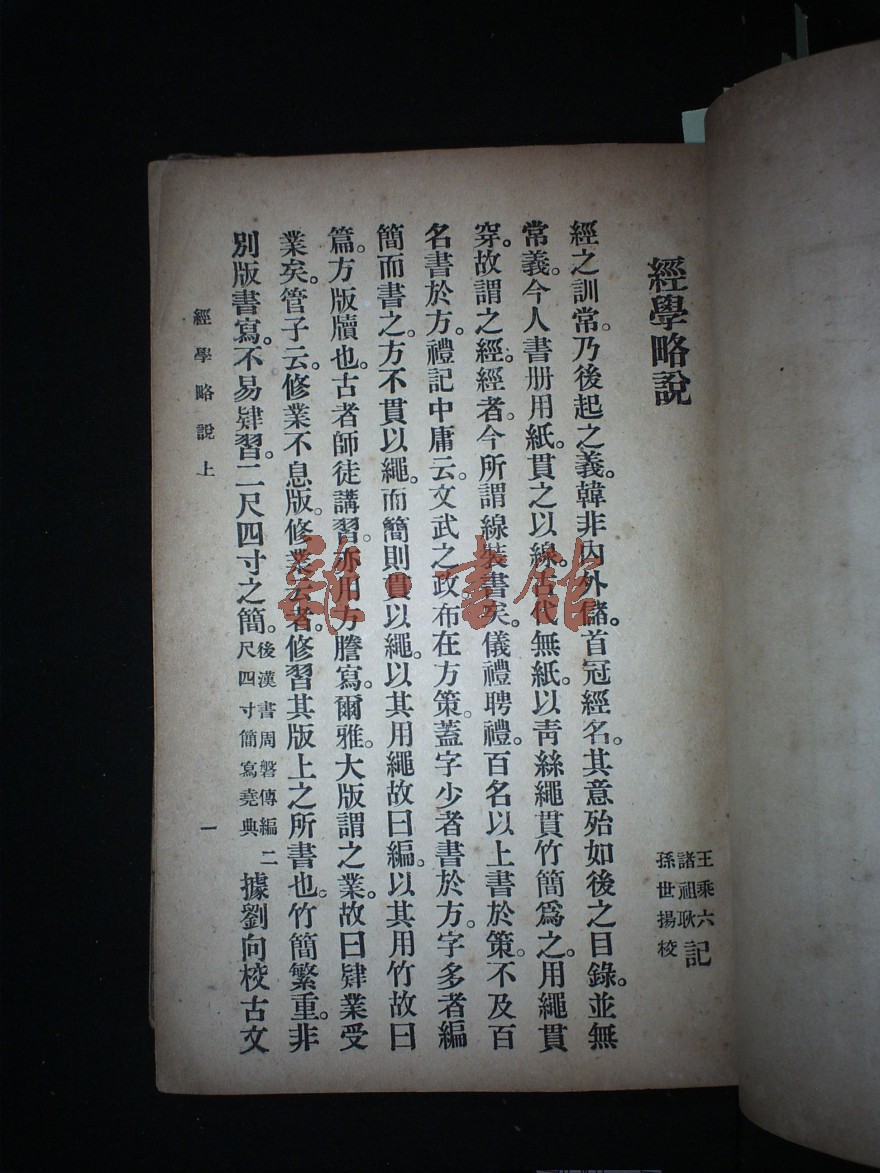 經學略說
王乘六
諸祖耿 記
孫世揚校
經之訓常。乃後起之義。韓非內外儲。首冠經名。其意殆如後之目錄。並無
常義。今人書册用紙。貫之以線。古代無紙。以青絲繩貫竹簡爲之。用繩貫
穿。故謂之經。經者。今所謂線裝書矣。儀禮聘禮。百名以上書於策。不及百
名書於方。禮記中庸云。文武之政布在方策。蓋字少者書於方。字多者編
簡而書之。方不貫以繩。而簡則貫以繩。以其用繩故曰編。以其用竹故曰
篇。方版牘也。古者師徒講習。亦用方謄寫。爾雅。大版謂之業。故曰肄業受
業矣。管子云。修業不息版。修業云者。修習其版上之所書也。竹簡繁重。非
別版書寫。不易肄習。二尺四寸之簡。後漢書周磐傳編二尺四寸簡寫堯典 據劉向校古文
經學略說上
一
雜·書館